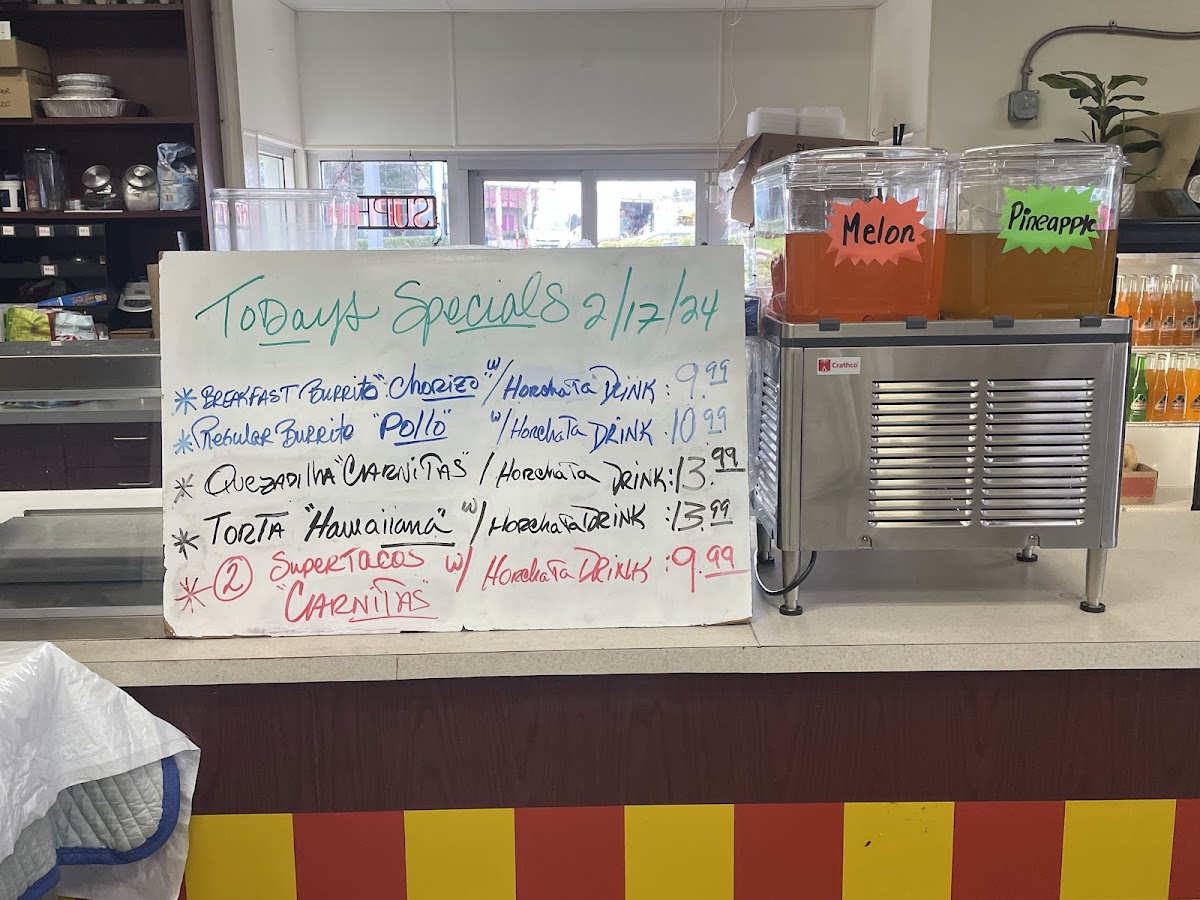 Todays Specials 2/17/24
* BREAKFAST BURRITO "Chorizo" w/ HORCHATA DRINK: 9.99
* REGULAR BURRITO "Pollo" w/ HORCHATA DRINK 10.99
* QUEZADILHA "CARNITAS" / HORCHATA DRINK: 13.99
* TORTA "Hawaiiana" w/ HORCHATA DRINK: 13.99
* ② SuperTacos w/ HORCHATA DRINK: 9.99
"CARNITAS"
Melon
Pineapple
Crathco